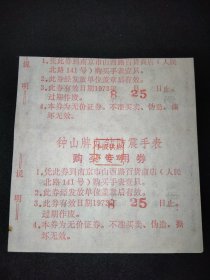 说明
1.凭此券到南京市山西路百货商店(人民
北路141号)购买手表壹只。
2.此券经发放单位盖章后有效。
3.此券有效日期1973年8月25日止,
过期作废。
4.本券为无价证券,不准买卖、伪造、损
坏无效。
钟山牌 防震手表
购买专用券
说明
1.凭此券到南京市山西路百货商店(人民
北路141号)购买手表壹只。
2.此券经发放单位盖章后有效。
3.此券有效日期1973年8月25日止,
过期作废。
4.本券为无价证券,不准买卖、伪造、损
坏无效。